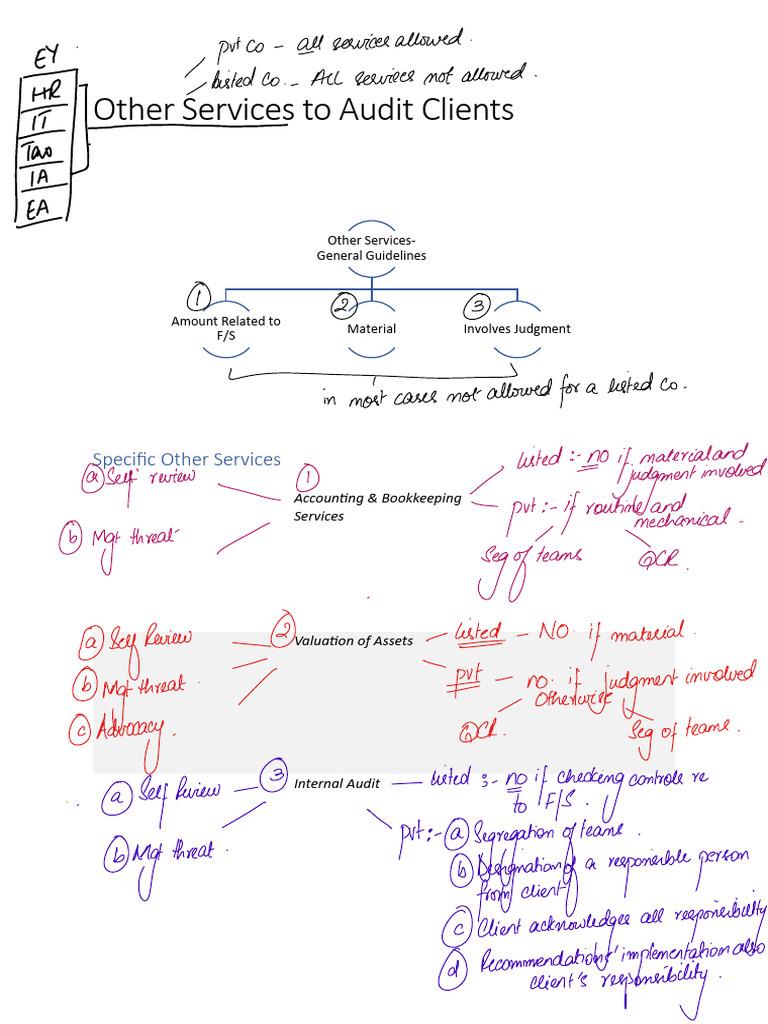 EY
HR
IT
Tax
IA
EA
pvt co - all services allowed.
Listed Co. - ALL services not allowed.
Other Services to Audit Clients
Other Services-
General Guidelines
1
Amount Related to
F/S
2
Material
3
Involves Judgment
in most cases not allowed for a listed co.
Specific Other Services
a Self review
b Mgt threat
1
Accounting & Bookkeeping
Services
listed :- no if material and
judgment involved
pvt :- if routine and
mechanical.
Seg of teams
QCR.
a Self Review
b Mgt threat.
c Advocacy.
2
Valuation of Assets
listed - NO if material.
pvt - no. if judgment involved
Otherwise
QCR.
Seg of teams.
a Self Review
b Mgt threat.
3
Internal Audit
listed :- no if checking controls re
to F/S.
pvt :- a Segregation of teams.
b Designation of a responsible person
from client
c Client acknowledges all responsibility
d Recommendations' implementation also
client's responsibility.